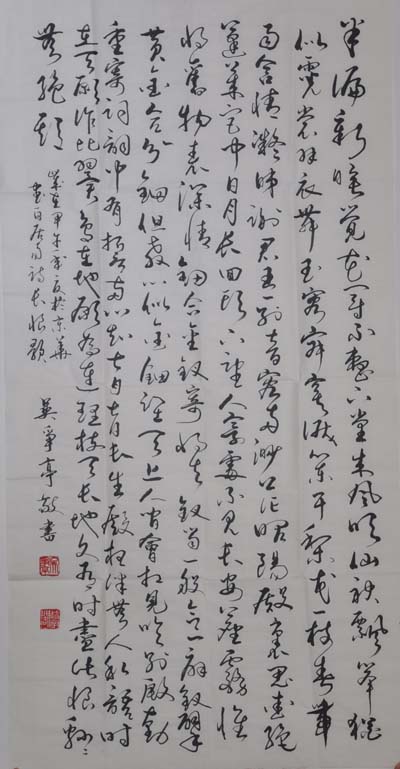 半偏新睡觉花冠不整下堂来风吹仙袂飘举犹
似霓裳羽衣舞玉容寂寞泪阑干梨花一枝春带
雨含情凝睇谢君王一别音容两渺茫昭阳殿里恩爱绝
蓬莱宫中日月长回头下望人寰处不见长安见尘雾惟
将旧物表深情钿合金钗寄将去钗留一股合一扇钗擘
黄金合分钿但教心似金钿坚天上人间会相见临别殷勤
重寄词词中有誓两心知七月七日长生殿夜半无人私语时
在天愿作比翼鸟在地愿为连理枝天长地久有时尽此恨绵〻
无绝期
岁在甲午年夏于京华
书白居易诗长恨歌
争亭敬书